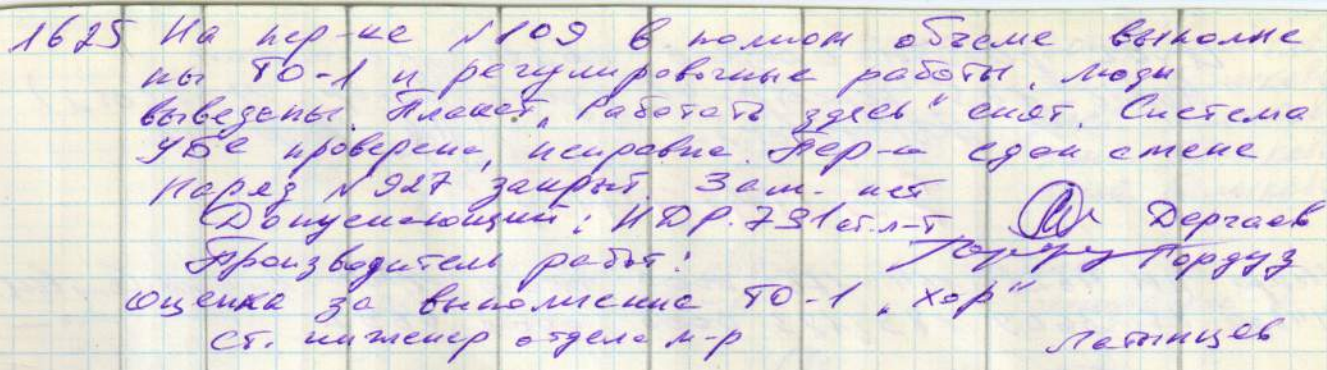 1625 На пер-ке №109 в полном объеме выполне
ны ТО-1 и регулировочные работы. Люди
выведены. Плакат „Работать здесь" снят. Система
УБС проверена, исправна. Пер-к сдан смене
Наряд №927 закрыт. Зам. - нет
Допускающий: НДР. 791 ст. л-т Дергаев
Производитель работ: Гордуз
Оценка за выполнение ТО-1 „хор"
ст. инженер отдела м-р Латынцев